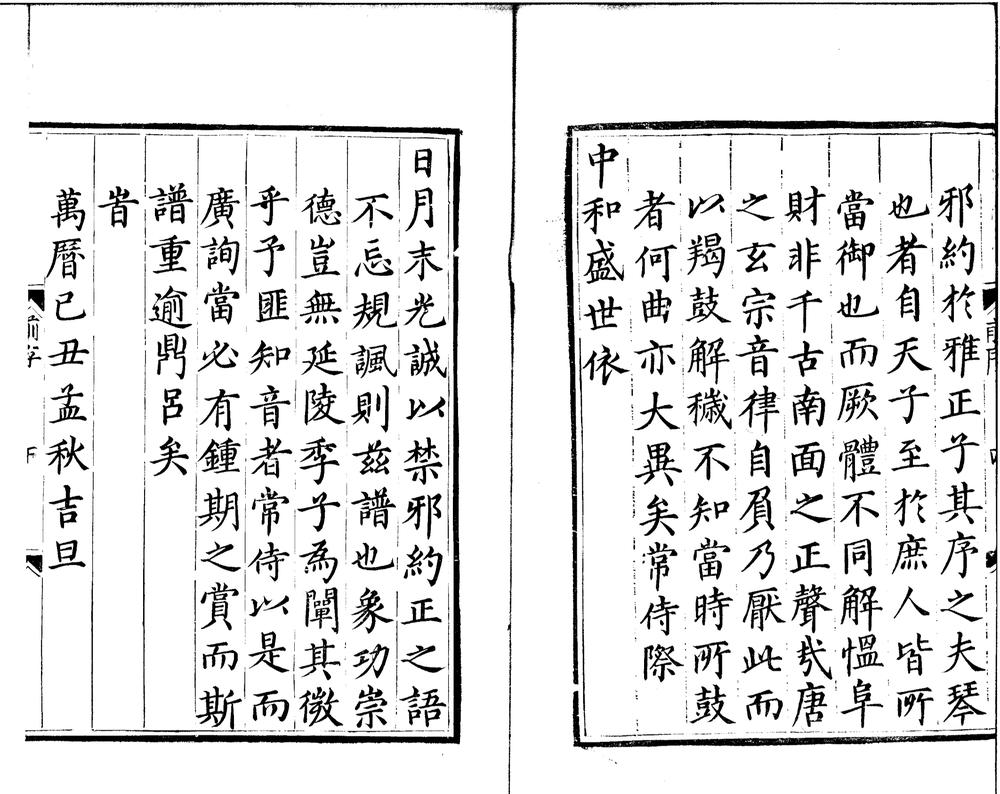 邪約於雅正子其序之夫琴
也者自天子至於庶人皆所
當御也而厥體不同解慍阜
財非千古南面之正聲㢤唐
之玄宗音律自負乃厭此而
以羯鼓解穢不知當時所鼓
者何曲亦大異矣常侍際
中和盛世依
日月末光誠以禁邪約正之語
不忘規諷則兹譜也象功崇
德豈無延陵季子為闡其微
乎予匪知音者常侍以是而
廣詢當必有鍾期之賞而斯
譜重逾鼎呂矣
旹
萬曆己丑孟秋吉旦